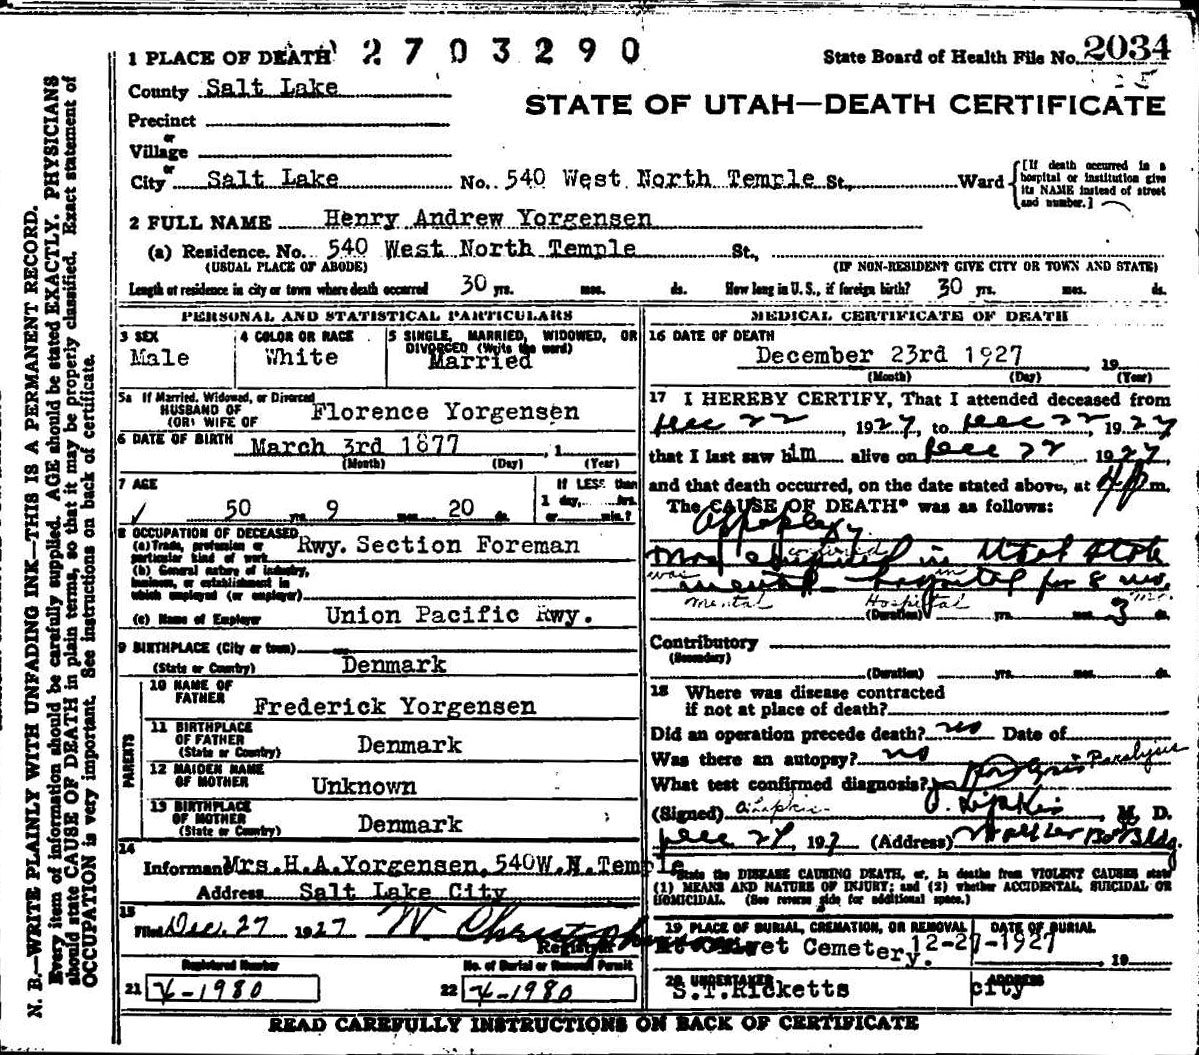 1 PLACE OF DEATH 2703290 State Board of Health File No. 2034
County Salt Lake
STATE OF UTAH—DEATH CERTIFICATE
Precinct
or
Village
or
City Salt Lake No. 540 West North Temple St., Ward
[If death occurred in a hospital or institution give its NAME instead of street and number.]
2 FULL NAME Henry Andrew Yorgensen
(a) Residence. No. 540 West North Temple St.,
(USUAL PLACE OF ABODE) (IF NON-RESIDENT GIVE CITY OR TOWN AND STATE)
Length of residence in city or town where death occurred 30 yrs. mos. ds. How long in U. S., if foreign birth? 30 yrs. mos. ds.
PERSONAL AND STATISTICAL PARTICULARS
3 SEX
Male
4 COLOR OR RACE
White
5 SINGLE, MARRIED, WIDOWED, OR
DIVORCED (Write the word)
Married
5a If Married, Widowed, or Divorced
HUSBAND OF
(OR) WIFE OF Florence Yorgensen
6 DATE OF BIRTH March 3rd 1877 , 1
(Month) (Day) (Year)
7 AGE
50 yrs. 9 mos. 20 ds.
If LESS than
1 day, hrs.
or min.?
8 OCCUPATION OF DECEASED
(a) Trade, profession or
particular kind of work Rwy. Section Foreman
(b) General nature of industry,
business, or establishment in
which employed (or employer)
(c) Name of Employer Union Pacific Rwy.
9 BIRTHPLACE (City or town)
(State or Country) Denmark
PARENTS
10 NAME OF
FATHER Frederick Yorgensen
11 BIRTHPLACE
OF FATHER
(State or Country) Denmark
12 MAIDEN NAME
OF MOTHER Unknown
13 BIRTHPLACE
OF MOTHER
(State or Country) Denmark
14
Informant Mrs.H.A.Yorgensen,540W.N.Temple
Address Salt Lake City
15
Filed Dec. 27 1927 W. Christopherson
Registrar
Registered Number No. of Burial or Removal Permit
21 X-1980 22 X-1980
MEDICAL CERTIFICATE OF DEATH
16 DATE OF DEATH
December 23rd 1927 19
(Month) (Day) (Year)
17 I HEREBY CERTIFY, That I attended deceased from
Dec 22, 1927, to Dec 22, 1927
that I last saw him alive on Dec 22 1927,
and that death occurred, on the date stated above, at 4 P m.
The CAUSE OF DEATH* was as follows:
Apoplexy
confined in Utah State
was in
mental hospital for 8 mo.
Mental Hospital mo.
(Duration) yrs. mos. 3 ds.
Contributory
(Secondary)
(Duration) yrs. mos. ds.
18 Where was disease contracted
if not at place of death?
Did an operation precede death? no Date of
Was there an autopsy? no
What test confirmed diagnosis? Paralysis Paralysis
(Signed) J. Lipkis, M. D.
Dec 27, 1927 (Address) Walker Bldg.
*State the DISEASE CAUSING DEATH, or, in deaths from VIOLENT CAUSES state
(1) MEANS AND NATURE OF INJURY; and (2) whether ACCIDENTAL, SUICIDAL OR
HOMICIDAL. (See reverse side for additional space.)
19 PLACE OF BURIAL, CREMATION, OR REMOVAL
Mt Olivet Cemetery.
DATE OF BURIAL
12-27-1927 19
20 UNDERTAKER
S.T.Ricketts
ADDRESS
city
READ CAREFULLY INSTRUCTIONS ON BACK OF CERTIFICATE
N. B.—WRITE PLAINLY WITH UNFADING INK—THIS IS A PERMANENT RECORD.
Every item of information should be carefully supplied. AGE should be stated EXACTLY. PHYSICIANS
should state CAUSE OF DEATH in plain terms, so that it may be properly classified. Exact statement of
OCCUPATION is very important. See instructions on back of certificate.